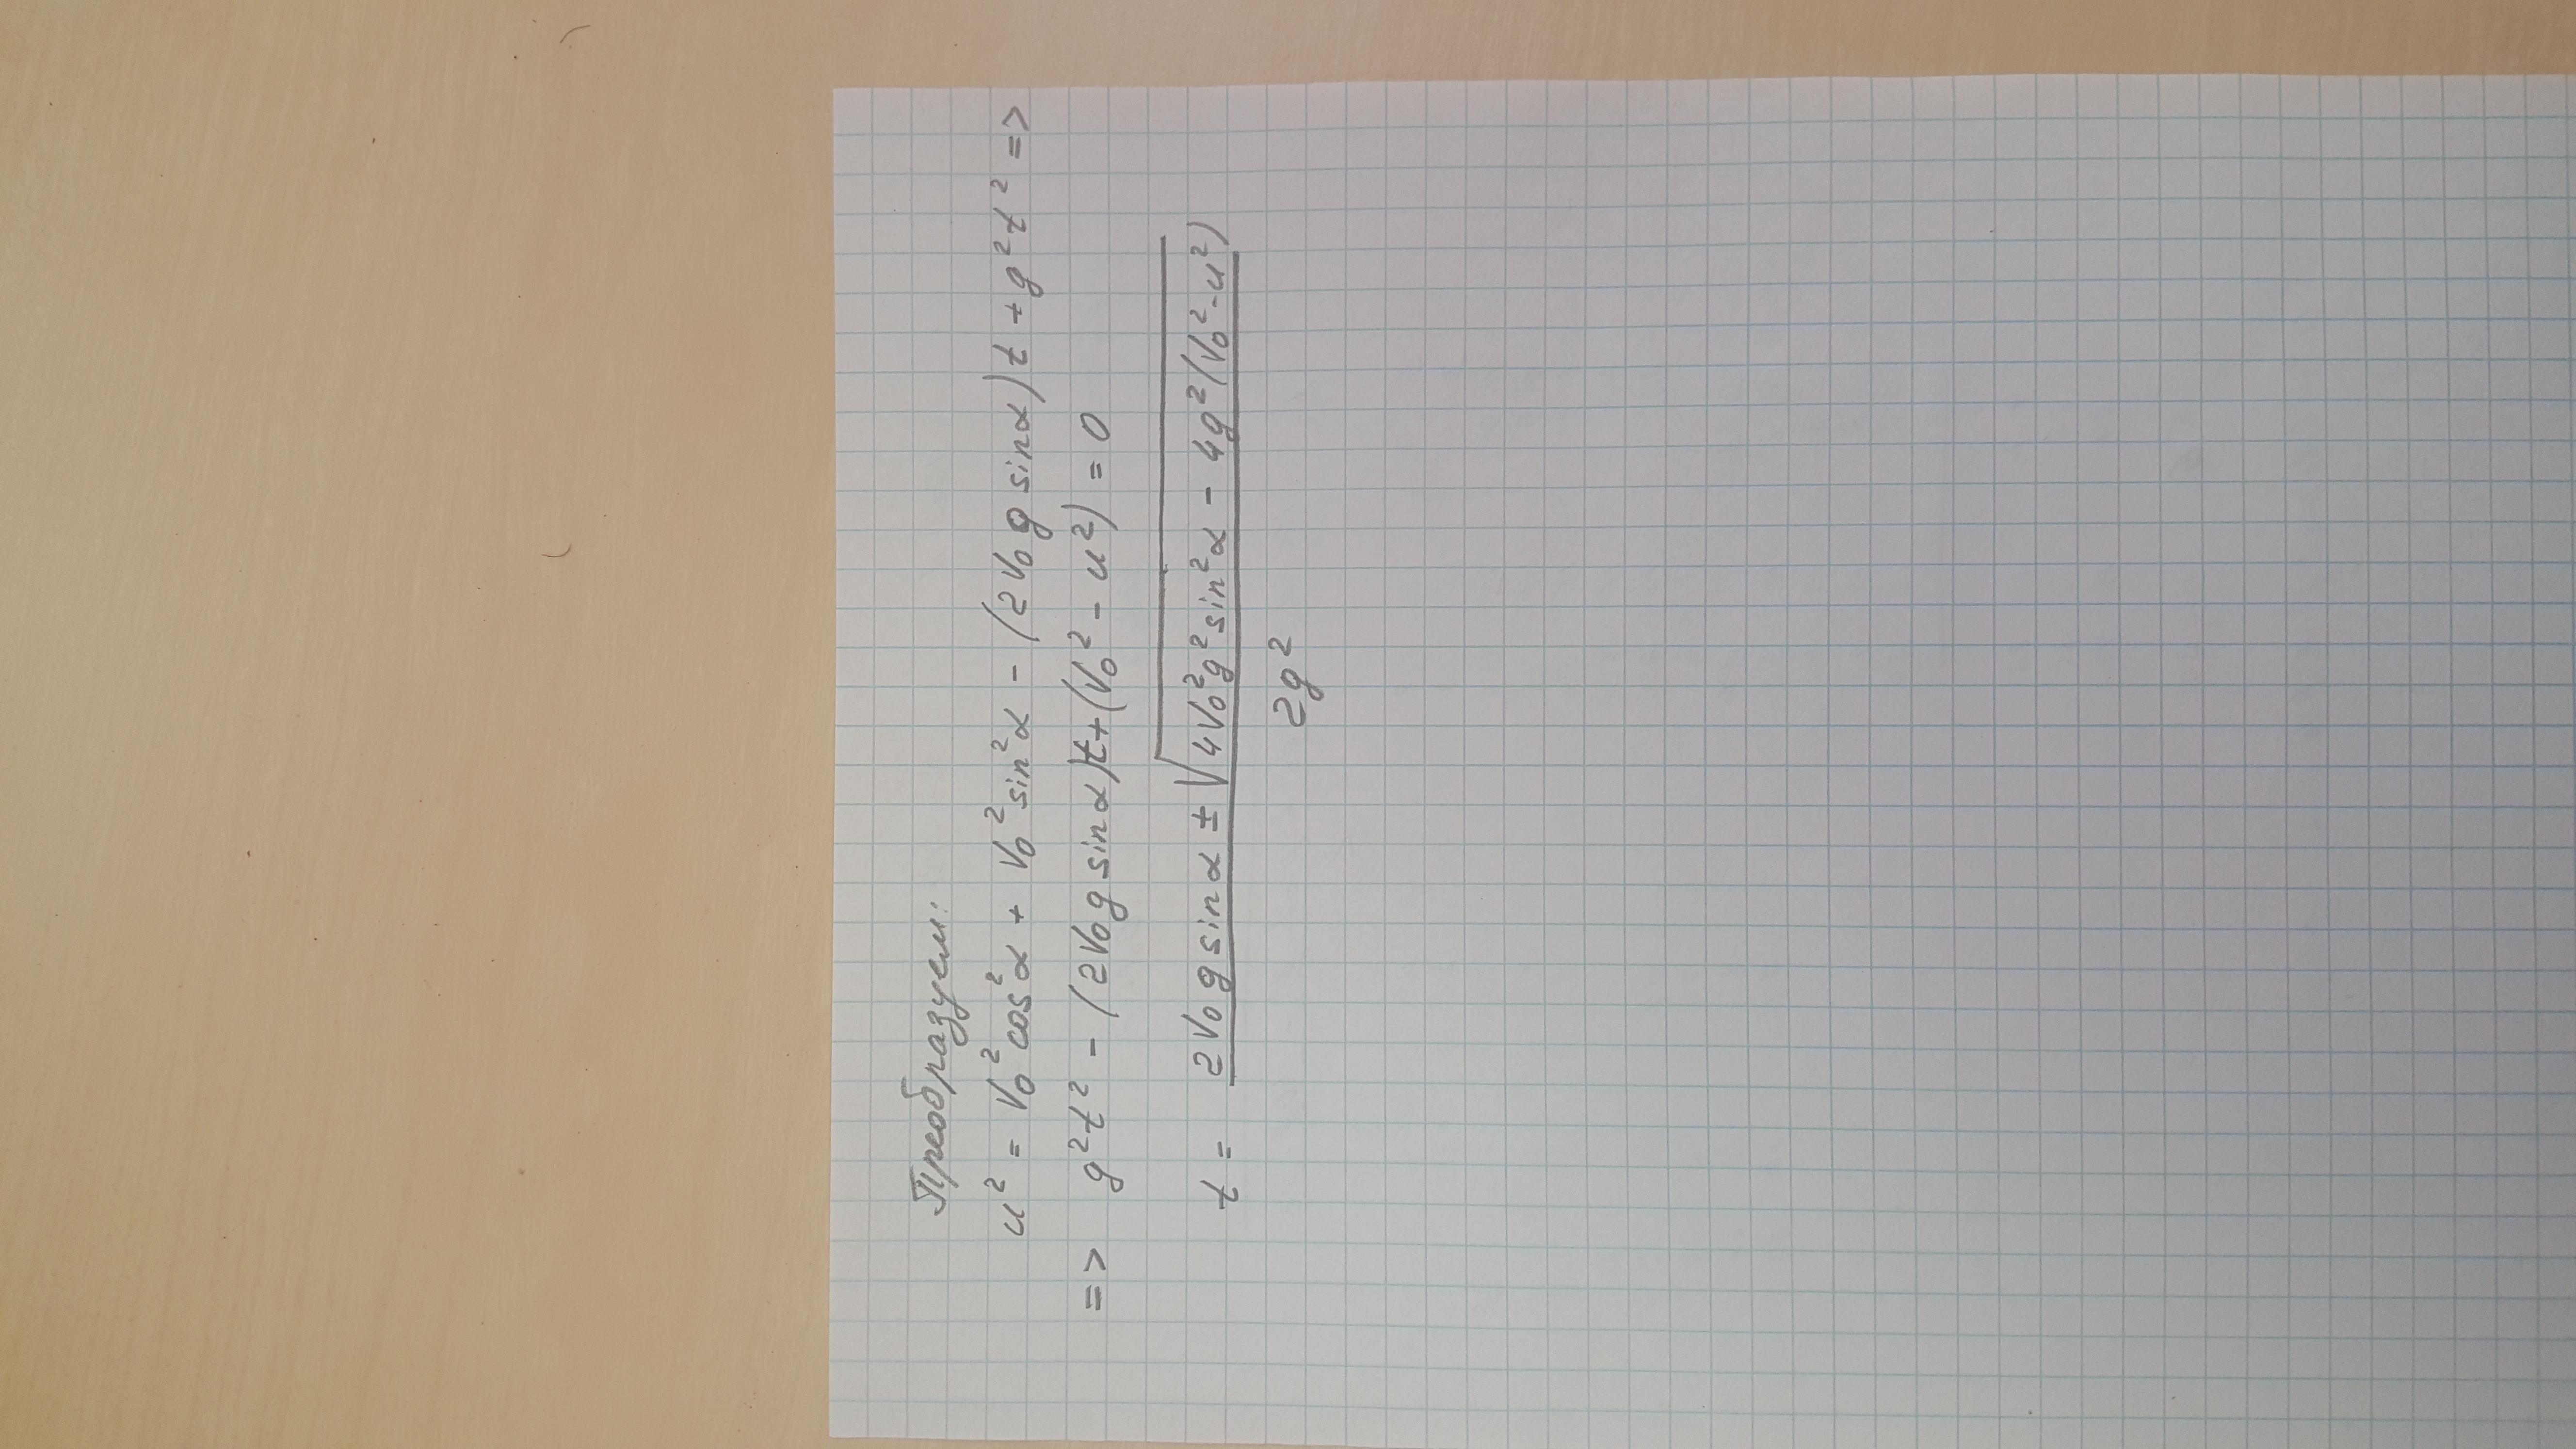 Преобразуем:
u² = V₀² cos² α + V₀² sin² α - (2 V₀ g sin α) t + g² t² =>
=> g² t² - (2 V₀ g sin α) t + (V₀² - u²) = 0
t = (2 V₀ g sin α ± √(4 V₀² g² sin² α - 4 g² (V₀² - u²))) / 2 g²